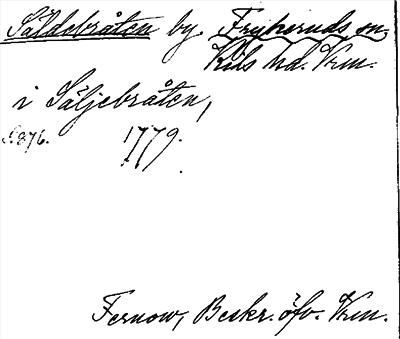 Säldebråten by. Frykeruds sn.
Kils hd. Vrm.
i Säljebråten,
S. 876. 1779.
Fernow, Beskr. öfv. Vrm.